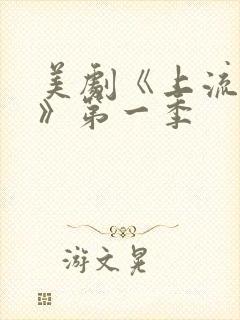 美劇《上流
》第一季
游文晃